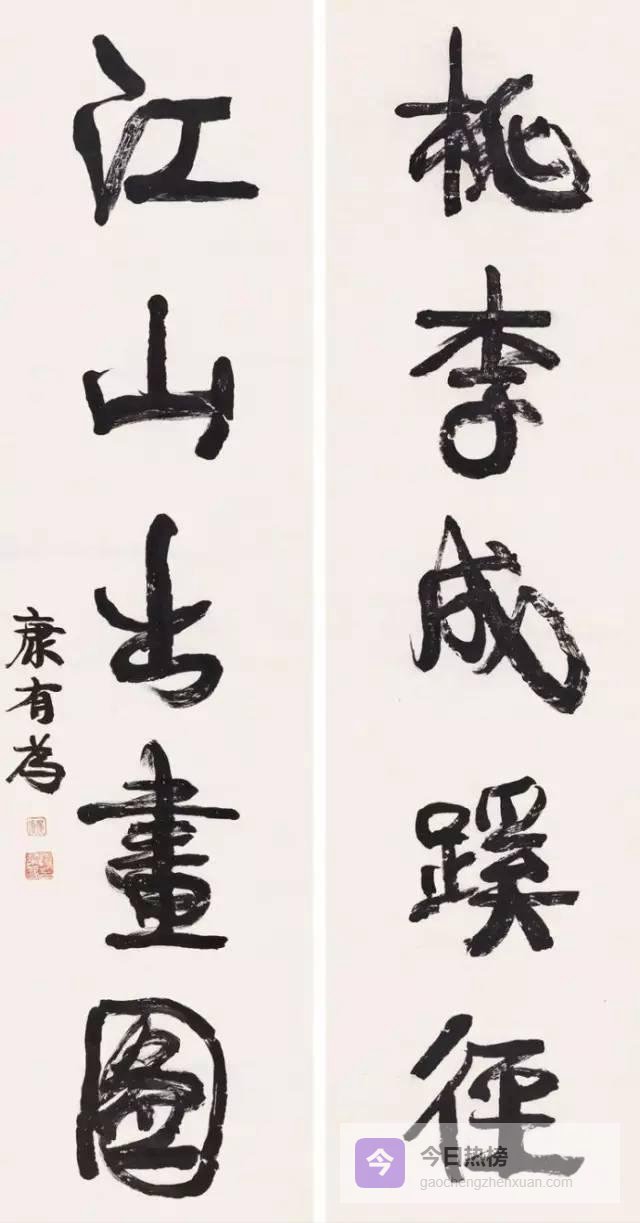 桃李成蹊径
江山出畫圖
康有為
今 今日热榜
gaochengzhenxuan.com